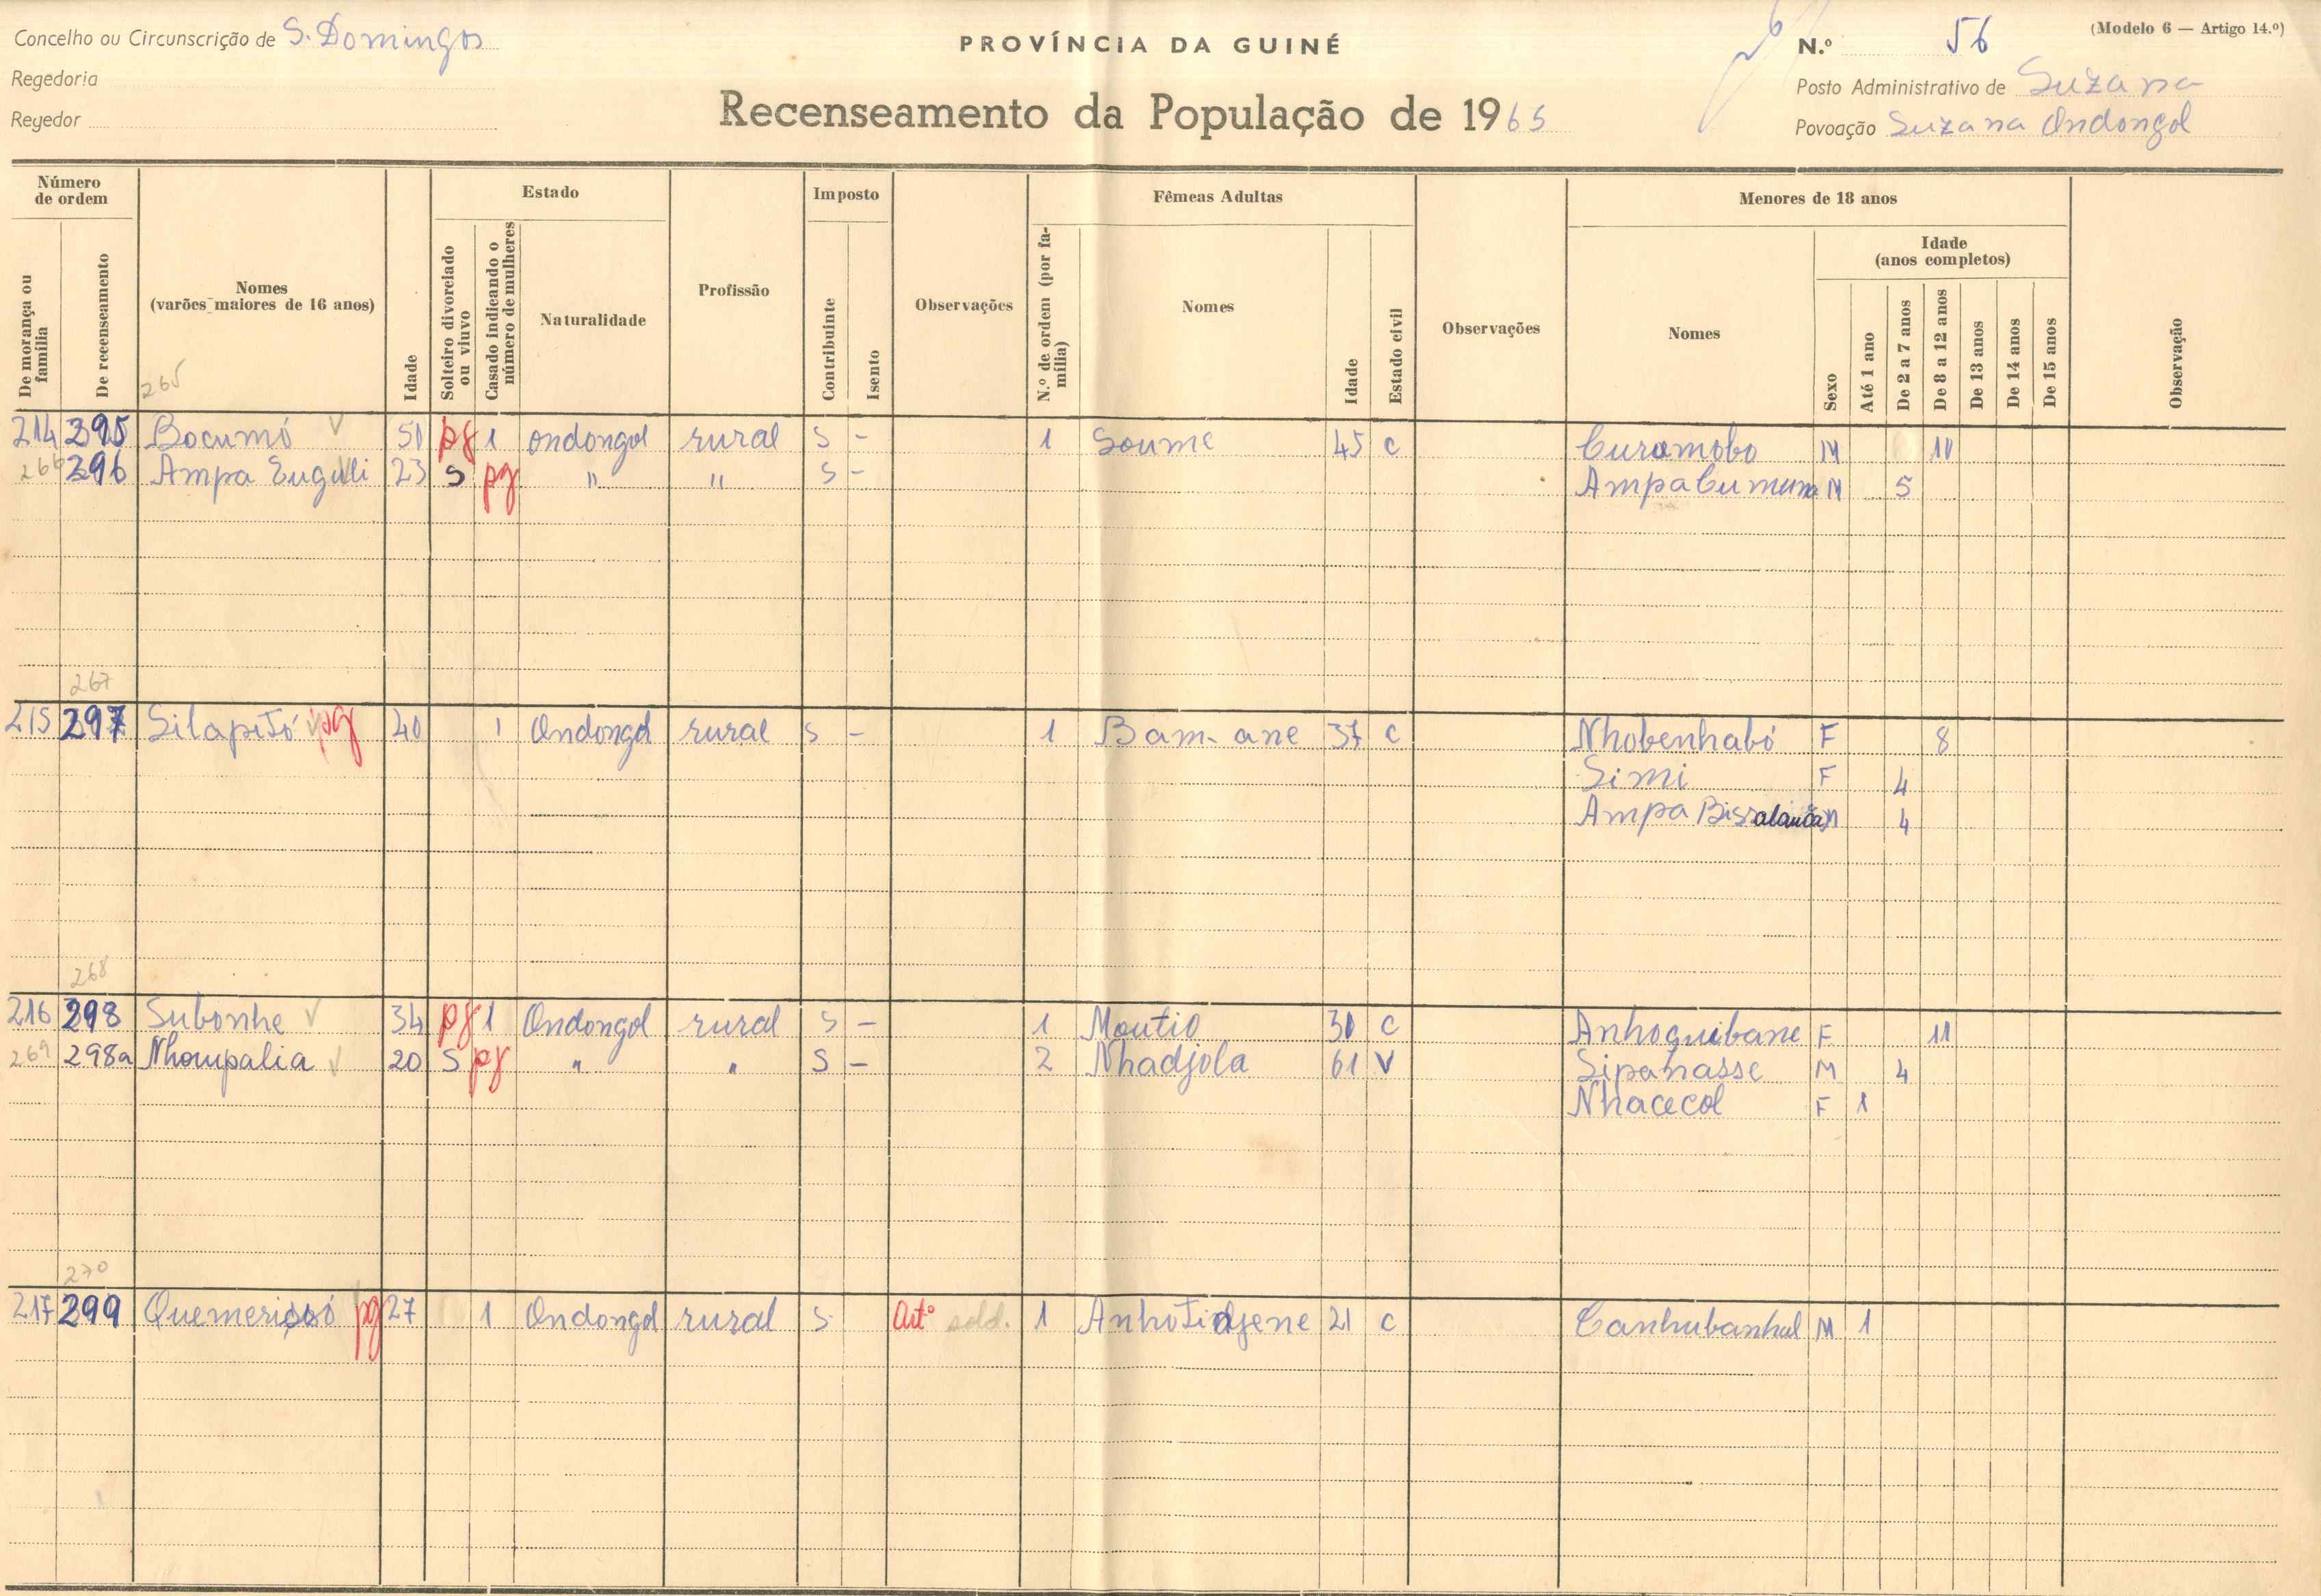 Concelho ou Circunscrição de S. Domingos
Regedoria
Reyedor
PROVÍNCIA DA GUINÉ
Recenseamento da População de 1965
(Modelo 6 — Artigo 14.º)
N.º 56
Posto Administrativo de Suzana
Povoação Suzana Ondongol
Número de ordem
De morança ou família
De recenseamento
Nomes (varões maiores de 16 anos)
Idade
Estado
Solteiro divorciado ou viuvo
Casado indicando o número de mulheres
Naturalidade
Profissão
Imposto
Contribuinte
Isento
Observações
Fêmeas Adultas
N.º de ordem (por família)
Nomes
Idade
Estado civil
Observações
Menores de 18 anos
Nomes
Sexo
Idade (anos completos)
Até 1 ano
De 2 a 7 anos
De 8 a 12 anos
De 13 anos
De 14 anos
De 15 anos
Observação
265
214 395 Bocumó 51 pg 1 Ondongol rural S - 1 Soume 45 C Curamobo M 10
266 396 Ampa Euguli 23 S pg " " S - Ampa Cumuna M 5
267
215 297 Silapitó pg 40 1 Ondongol rural S - 1 Bam-ane 37 C Nhobenhabó F 8
Simi F 4
Ampa Bissalanca M 4
268
216 298 Subonhe 34 pg 1 Ondongol rural S - 1 Moutio 30 C Anhoguibane F 11
269 298a Nhompalia 20 S pg " " S - 2 Nhadjola 61 V Sipanasse M 4
Nhacecol F 1
270
217 299 Quemerissó pg 27 1 Ondongol rural S Artº sold. 1 Anhotidjene 21 C Canhubanhal M 1